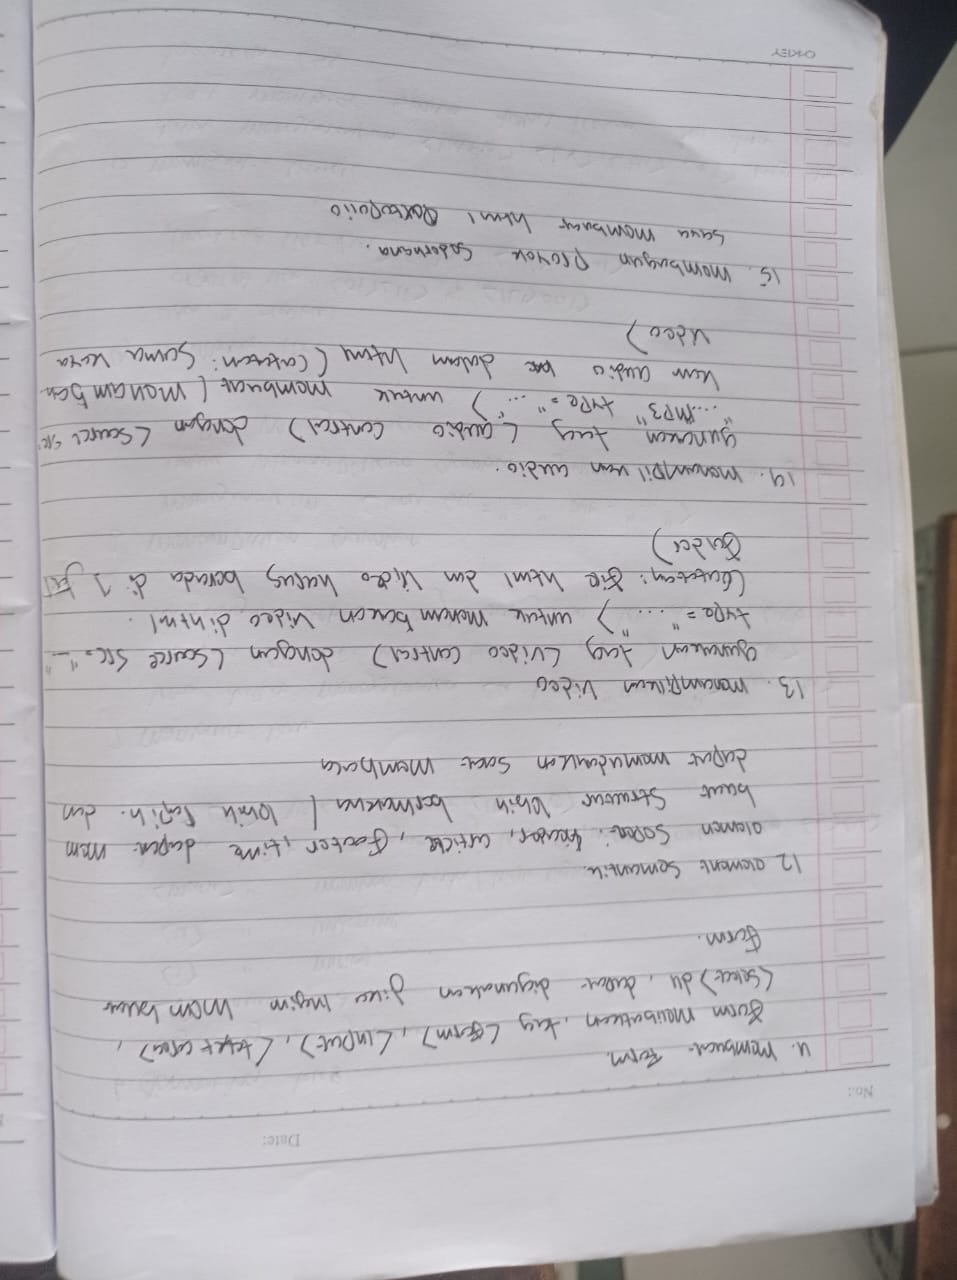 No.:
Date:
11. Membuat form.
form melibatkan, tag <form>, <input>, <text area>,
<select> dll, dapat digunakan jika ingin membuat
form.
12 element semantik.
elemen seperti: header, article, footer, time dapat mem
buat struktur lebih bermakna / lebih rapih. dan
dapat memudahkan saat membaca
13. menampilkan video
gunakan tag <video control> dengan <source src="..."
type = "...."> untuk menambahkan video di html.
(Catatan: file html dan video harus berada di 1
folder)
14. menampilkan audio.
gunakan tag <audio control> dengan <source src
"...MP3" type="..."> untuk membuat / menambah
kan audio ke dalam html (Catatan: sama kaya
video)
15. membangun proyek sederhana.
saya membuat html
OKEY